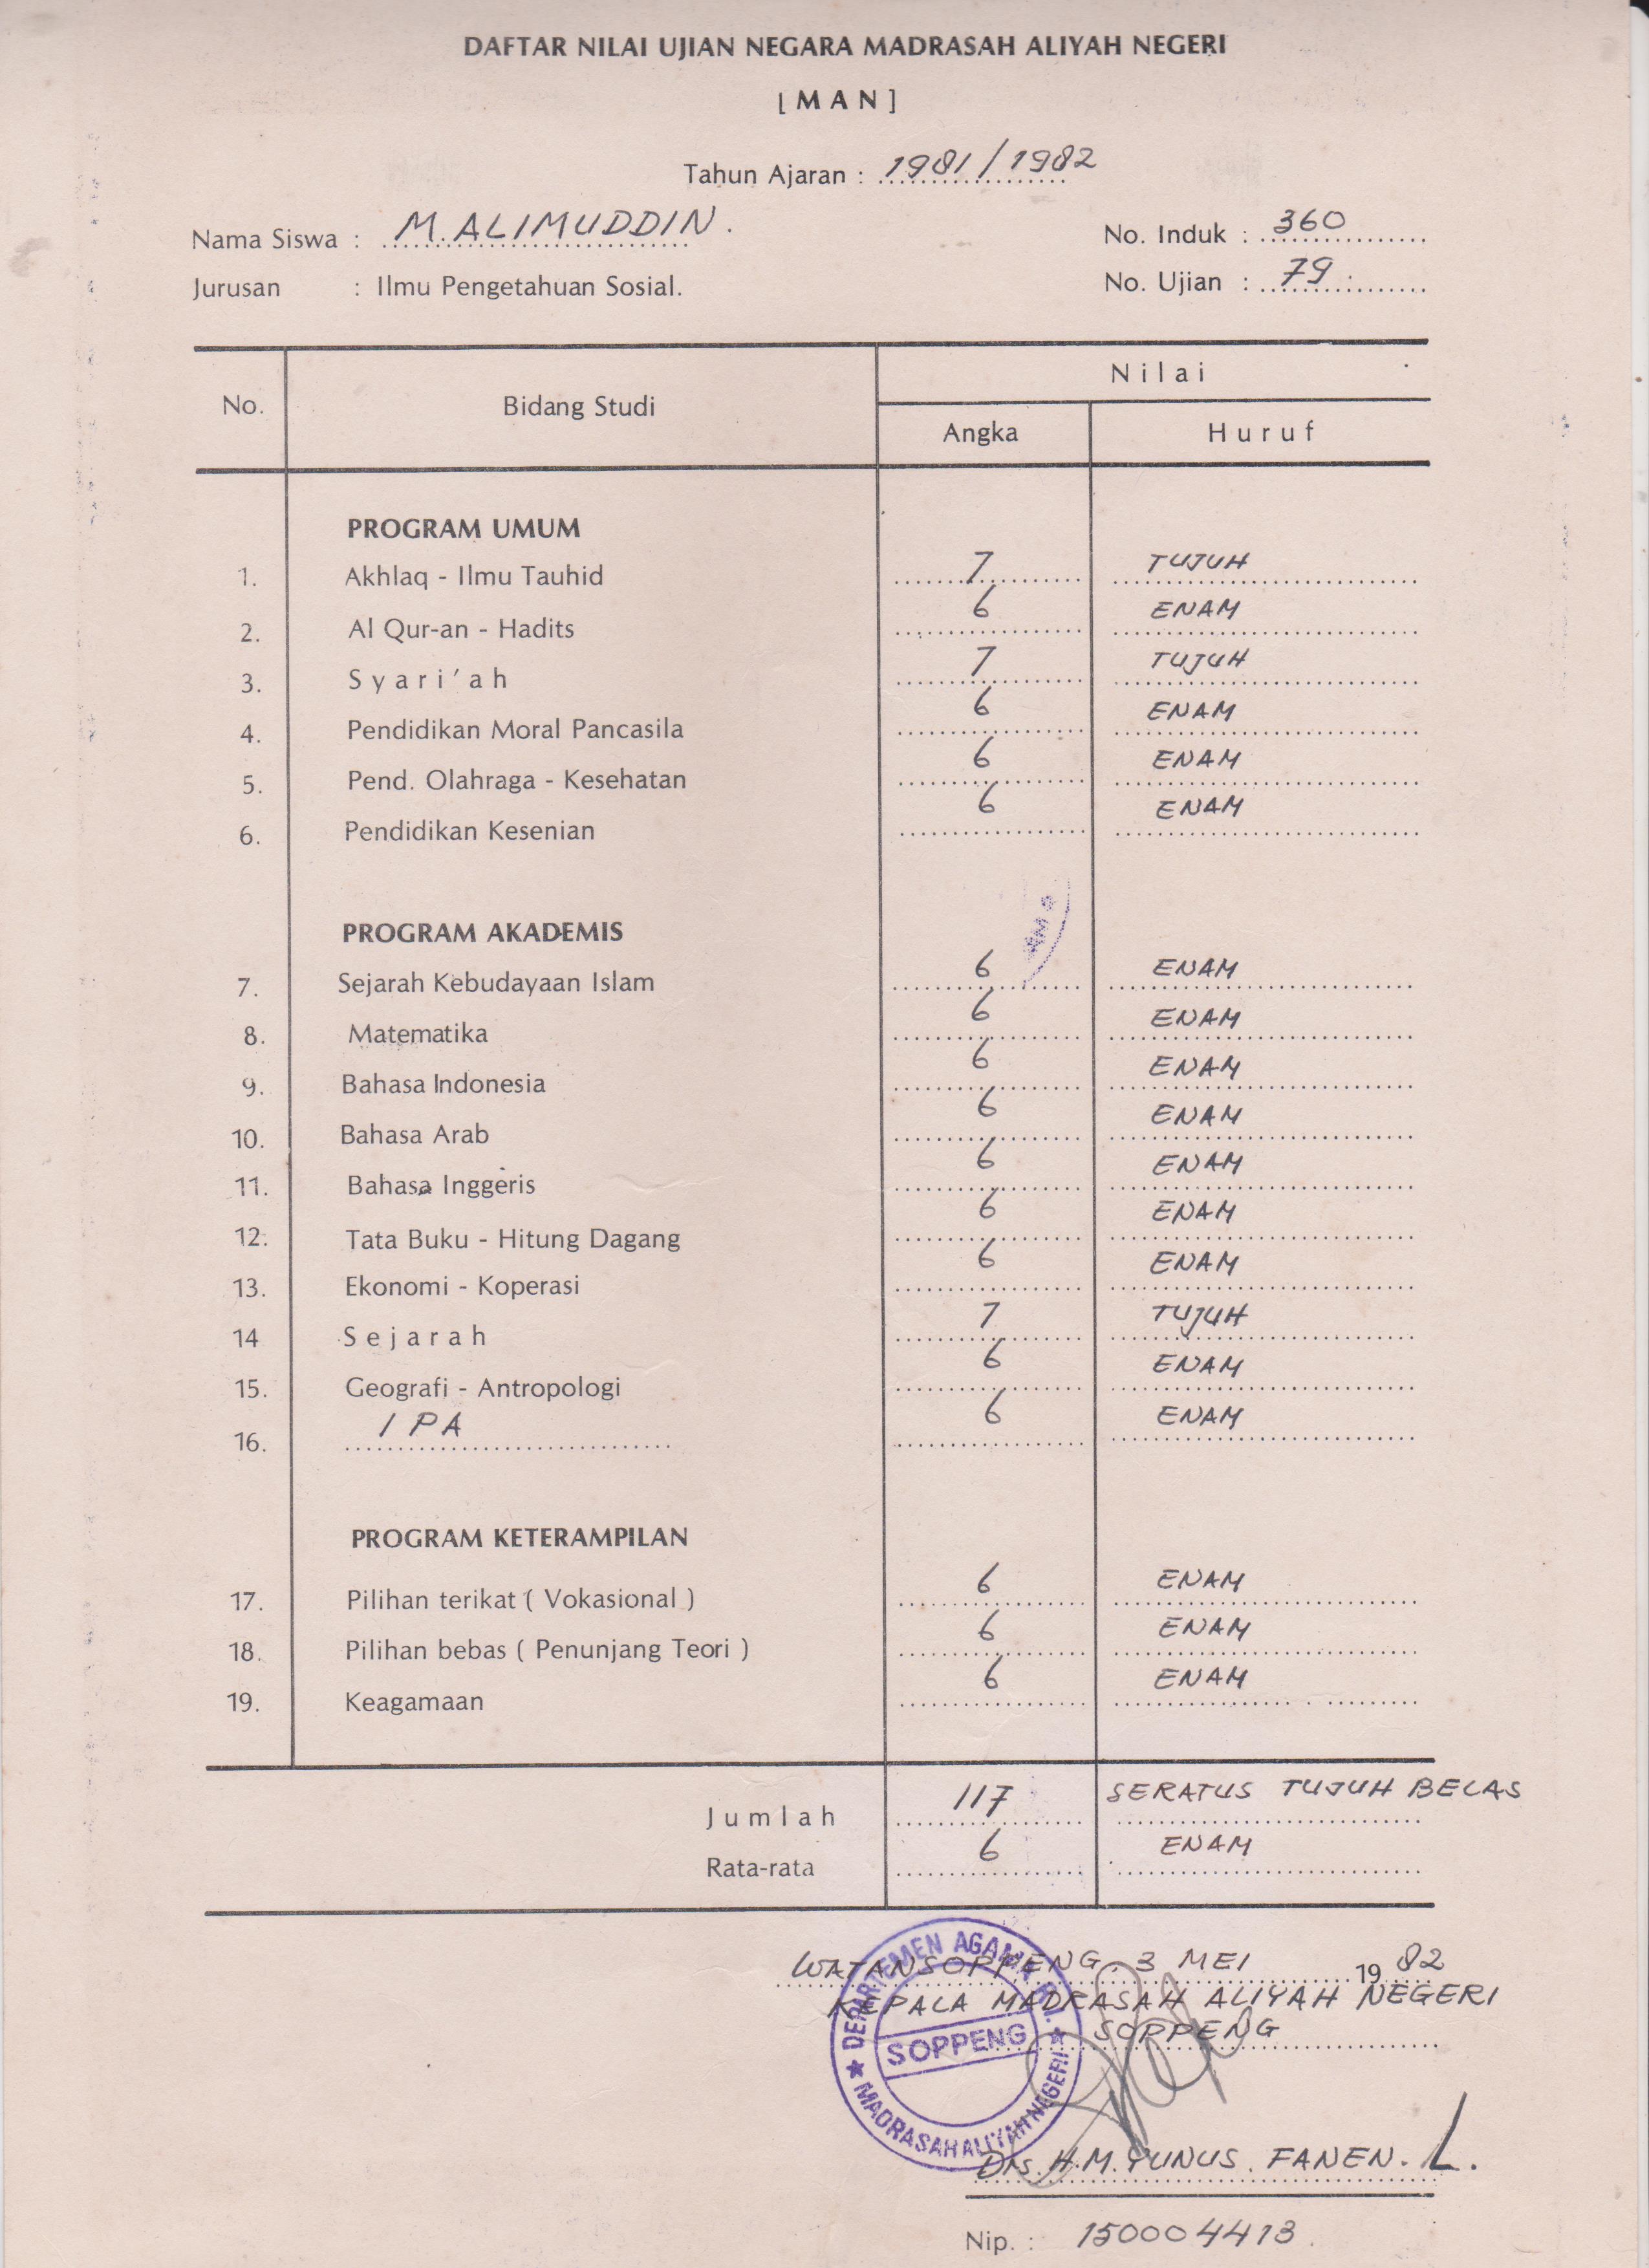 DAFTAR NILAI UJIAN NEGARA MADRASAH ALIYAH NEGERI
[ M A N ]
Tahun Ajaran : 1981/1982
Nama Siswa : M. ALIMUDDIN. No. Induk : 360
Jurusan : Ilmu Pengetahuan Sosial. No. Ujian : 79
No. Bidang Studi Nilai
Angka Huruf
PROGRAM UMUM
1. Akhlaq - Ilmu Tauhid 7 TUJUH
2. Al Qur-an - Hadits 6 ENAM
3. Syari'ah 7 TUJUH
4. Pendidikan Moral Pancasila 6 ENAM
5. Pend. Olahraga - Kesehatan 6 ENAM
6. Pendidikan Kesenian 6 ENAM
PROGRAM AKADEMIS
7. Sejarah Kebudayaan Islam 6 ENAM
8. Matematika 6 ENAM
9. Bahasa Indonesia 6 ENAM
10. Bahasa Arab 6 ENAM
11. Bahasa Inggeris 6 ENAM
12. Tata Buku - Hitung Dagang 6 ENAM
13. Ekonomi - Koperasi 6 ENAM
14 Sejarah 7 TUJUH
15. Geografi - Antropologi 6 ENAM
16. IPA 6 ENAM
PROGRAM KETERAMPILAN
17. Pilihan terikat ( Vokasional ) 6 ENAM
18. Pilihan bebas ( Penunjang Teori ) 6 ENAM
19. Keagamaan 6 ENAM
Jumlah 117 SERATUS TUJUH BELAS
Rata-rata 6 ENAM
WATANSOPPENG, 3 MEI 1982
KEPALA MADRASAH ALIYAH NEGERI
SOPPENG
DEPARTEMEN AGAMA R.I.
SOPPENG
MADRASAH ALIYAH NEGERI
Drs. H.M. YUNUS. FANEN. L.
Nip. : 150004413.